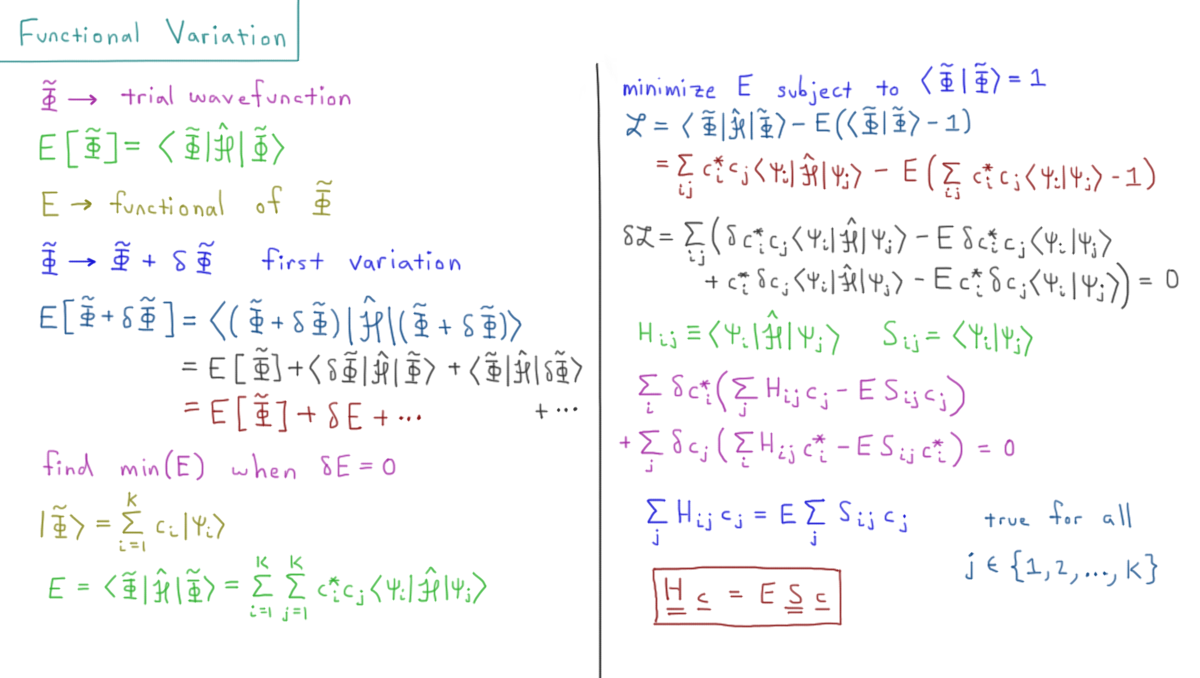 Functional Variation
Φ̃ → trial wavefunction
E[Φ̃] = ⟨Φ̃|Ĥ|Φ̃⟩
E → functional of Φ̃
Φ̃ → Φ̃ + δΦ̃ first variation
E[Φ̃+δΦ̃] = ⟨(Φ̃+δΦ̃)|Ĥ|(Φ̃+δΦ̃)⟩
= E[Φ̃]+⟨δΦ̃|Ĥ|Φ̃⟩ + ⟨Φ̃|Ĥ|δΦ̃⟩
+ ...
= E[Φ̃] + δE + ...
find min(E) when δE = 0
|Φ̃⟩ = Σ_{i=1}^{K} c_i|Ψ_i⟩
E = ⟨Φ̃|Ĥ|Φ̃⟩ = Σ_{i=1}^{K} Σ_{j=1}^{K} c_i^* c_j⟨Ψ_i|Ĥ|Ψ_j⟩
minimize E subject to ⟨Φ̃|Φ̃⟩ = 1
ℒ = ⟨Φ̃|Ĥ|Φ̃⟩ - E(⟨Φ̃|Φ̃⟩ - 1)
= Σ_{ij} c_i^* c_j⟨Ψ_i|Ĥ|Ψ_j⟩ - E(Σ_{ij} c_i^* c_j⟨Ψ_i|Ψ_j⟩ - 1)
δℒ = Σ_{ij}(δc_i^* c_j⟨Ψ_i|Ĥ|Ψ_j⟩ - E δc_i^* c_j⟨Ψ_i|Ψ_j⟩
+ c_i^* δc_j⟨Ψ_i|Ĥ|Ψ_j⟩ - E c_i^* δc_j⟨Ψ_i|Ψ_j⟩) = 0
H_{ij} ≡ ⟨Ψ_i|Ĥ|Ψ_j⟩ S_{ij} = ⟨Ψ_i|Ψ_j⟩
Σ_i δc_i^*(Σ_j H_{ij} c_j - E S_{ij} c_j)
+ Σ_j δc_j(Σ_i H_{ij} c_i^* - E S_{ij} c_i^*) = 0
Σ_j H_{ij} c_j = E Σ_j S_{ij} c_j
true for all
j ∈ {1,2,...,K}
H c = E S c